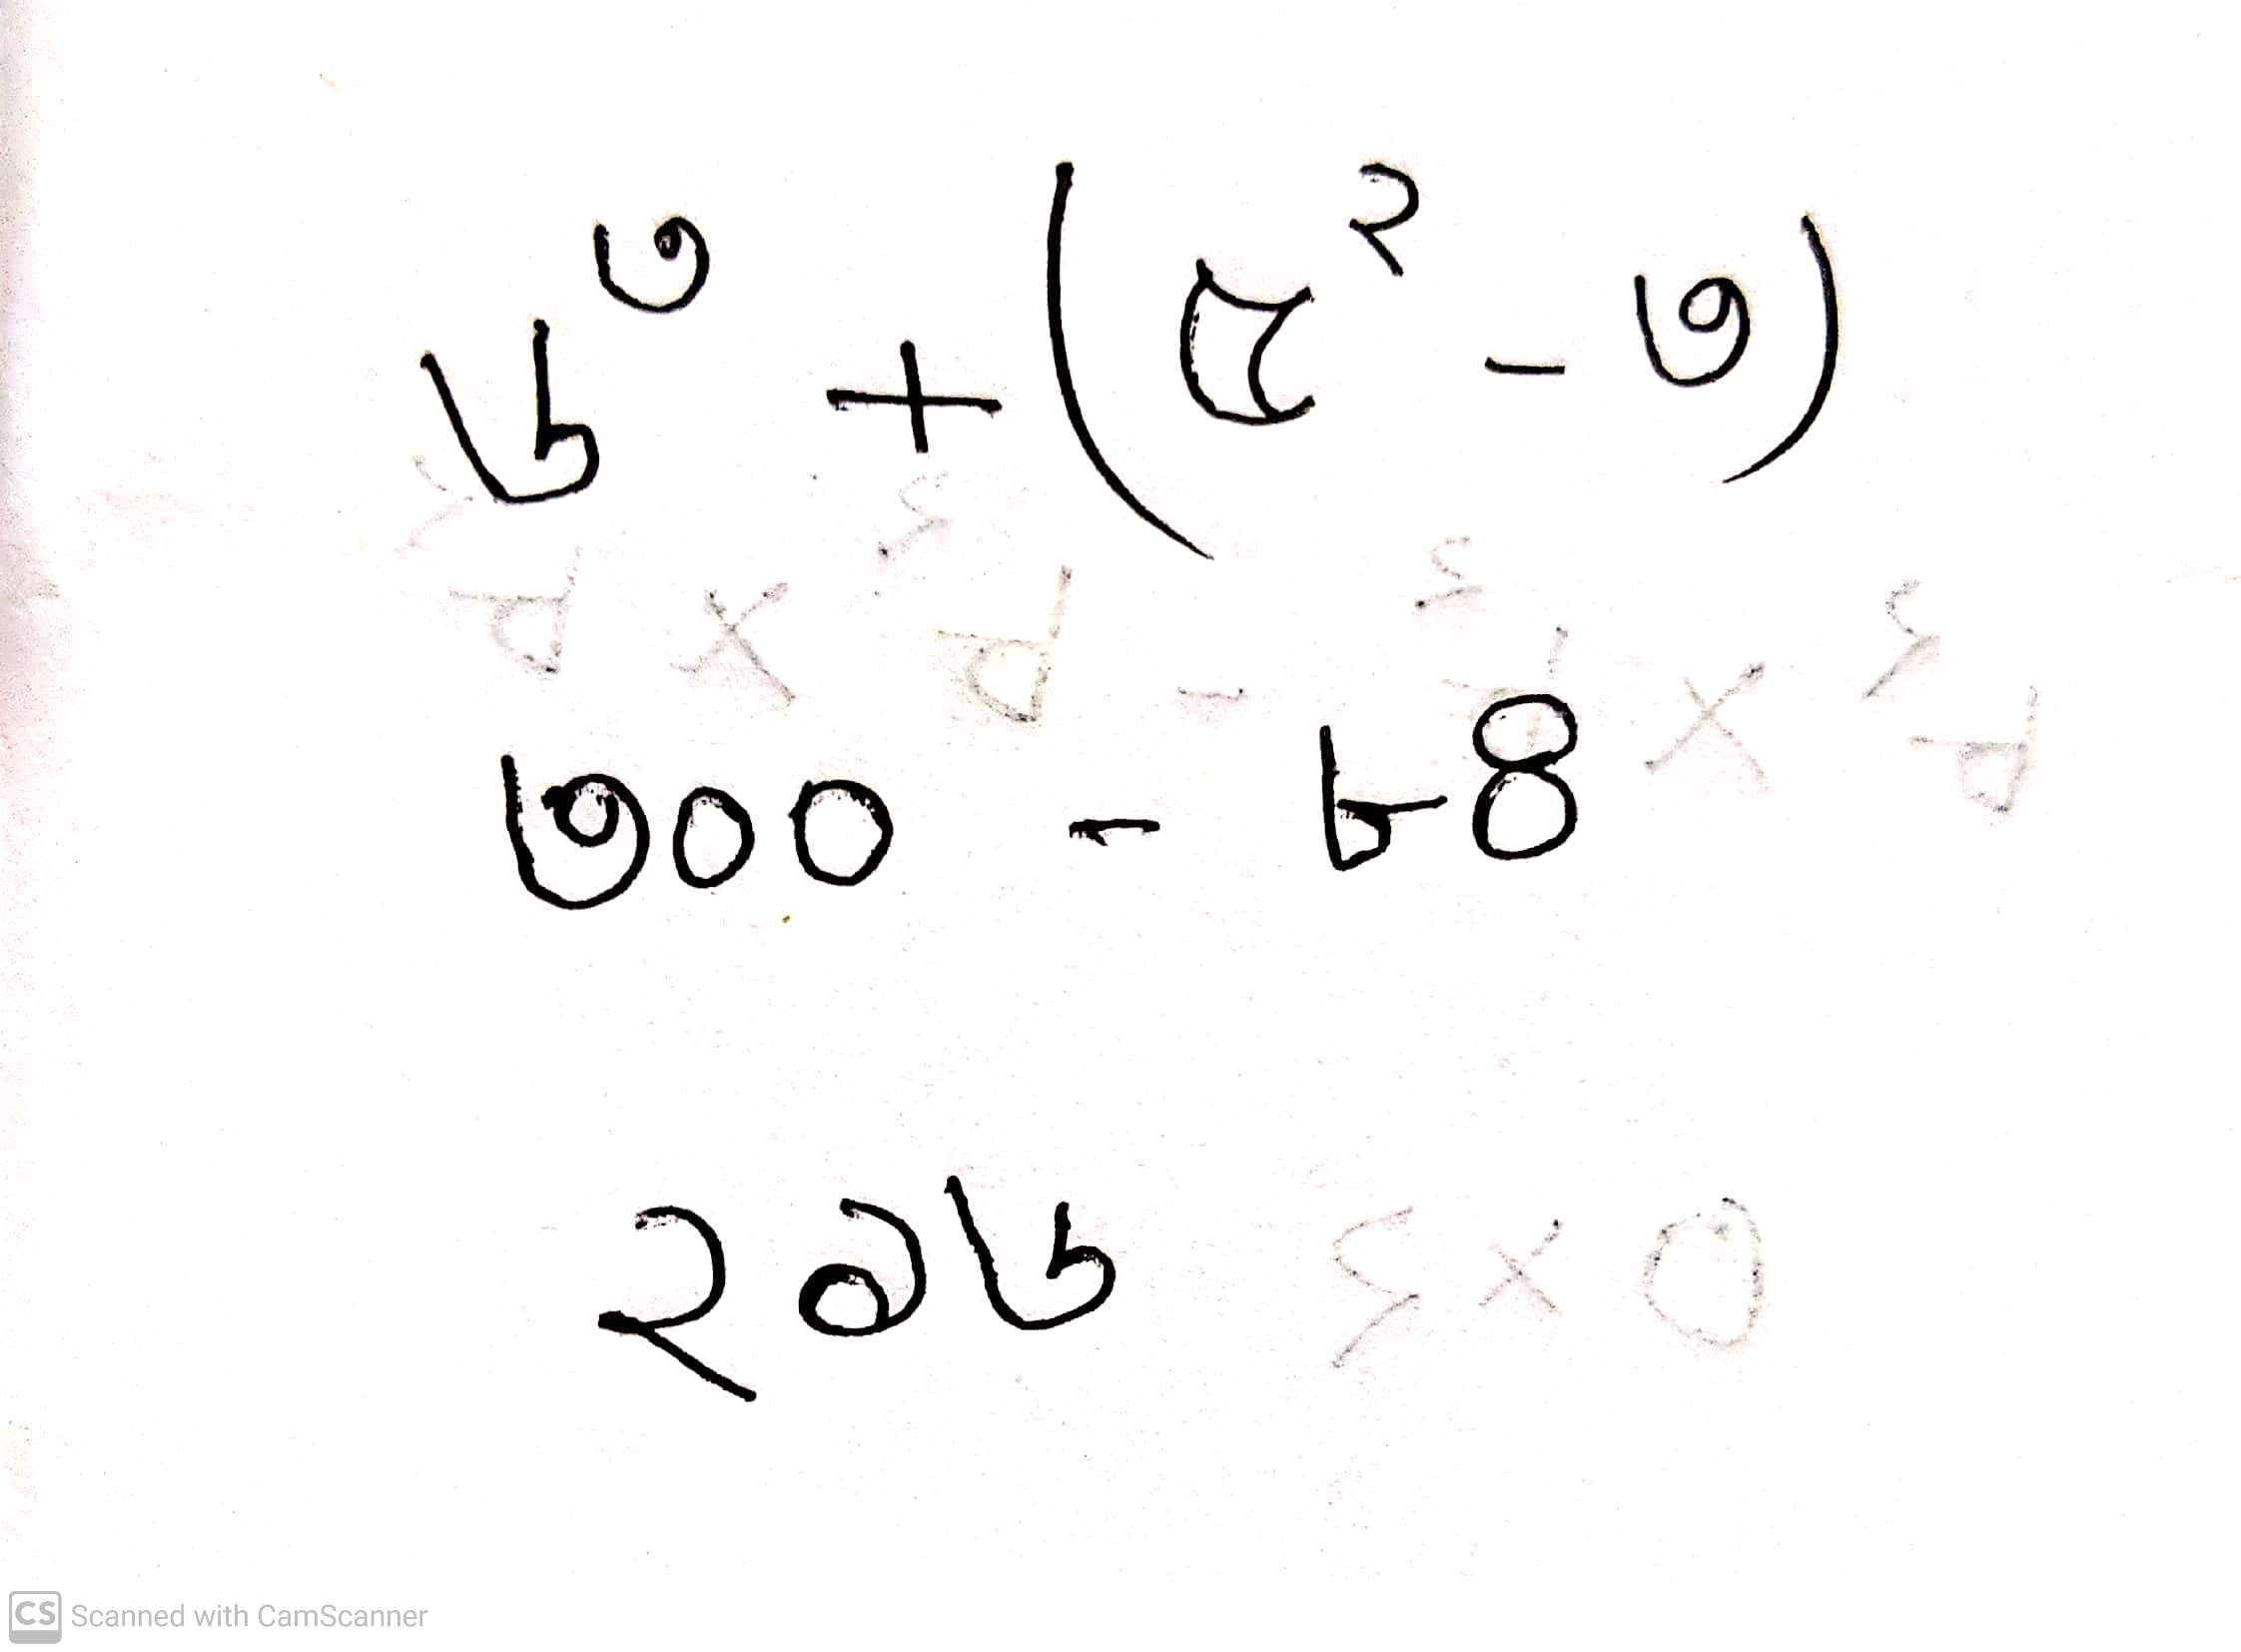 ৬^৩ + (৫^২ - ৩)
৩০০ - ৮৪
২১৬
CS Scanned with CamScanner